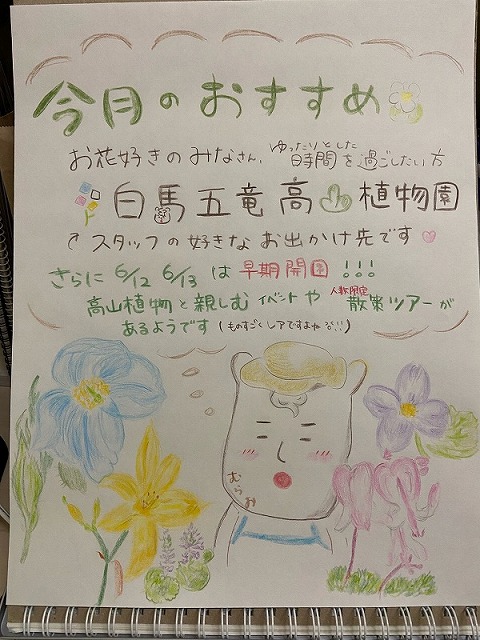 今月のおすすめ
お花好きのみなさん、ゆったりとした時間を過ごしたい方
白馬五竜高山植物園
スタッフの好きなお出かけ先です
さらに 6/12 6/13 は早期開園!!!
高山植物と親しむイベントや人数限定散策ツアーが
あるようです(ものすごくレアですよね!!)
むらお